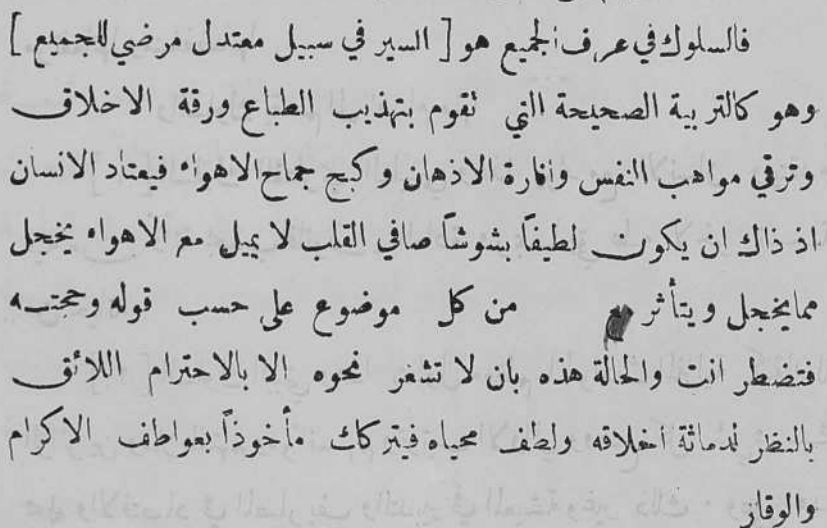 فالسلوك في عرف الجميع هو [ السير في سبيل معتدل مرضي للجميع ]
وهو كالتربية الصحيحة التي تقوم بتهذيب الطباع ورقة الاخلاق
وترقي مواهب النفس وانارة الاذهان وكبح جماح الاهواء فيعتاد الانسان
اذ ذاك ان يكون لطيفاً بشوشاً صافي القلب لا يميل مع الاهواء يخجل
مما يخجل ويتأثر من كل موضوع على حسب قوله وحجته
فتضطر انت والحالة هذه بان لا تشغر نحوه الا بالاحترام اللائق
بالنظر لدماثة اخلاقه ولطف محياه فيتركك مأخوذاً بعواطف الاكرام
والوقار